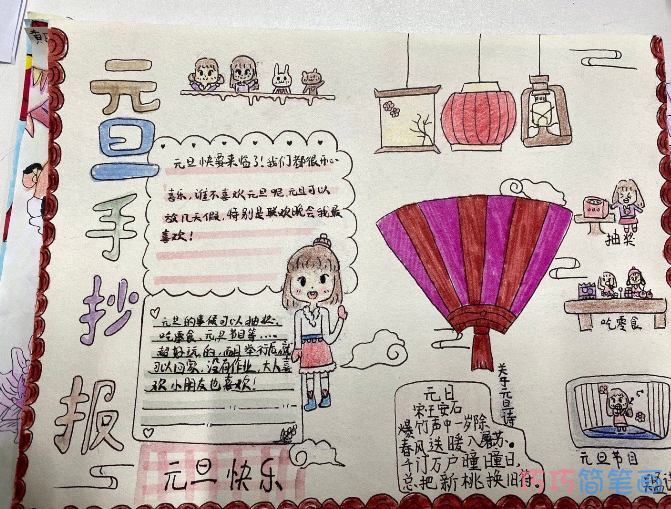 元旦手抄报
元旦快要来临了!我们都很开心
喜乐,谁不喜欢元旦呢,元旦可以
放几天假,特别是联欢晚会我最
喜欢!
元旦的事候可以抽奖、
吃零食、元旦节目等……
超好玩的,而且举行完
可以回家,没有作业,大人喜
欢小朋友也喜欢!
元旦快乐
抽奖
吃零食
元旦节目
关于元旦诗
元日
宋王安石
爆竹声中一岁除,
春风送暖入屠苏。
千门万户曈曈日,
总把新桃换旧符。
巧巧简笔画